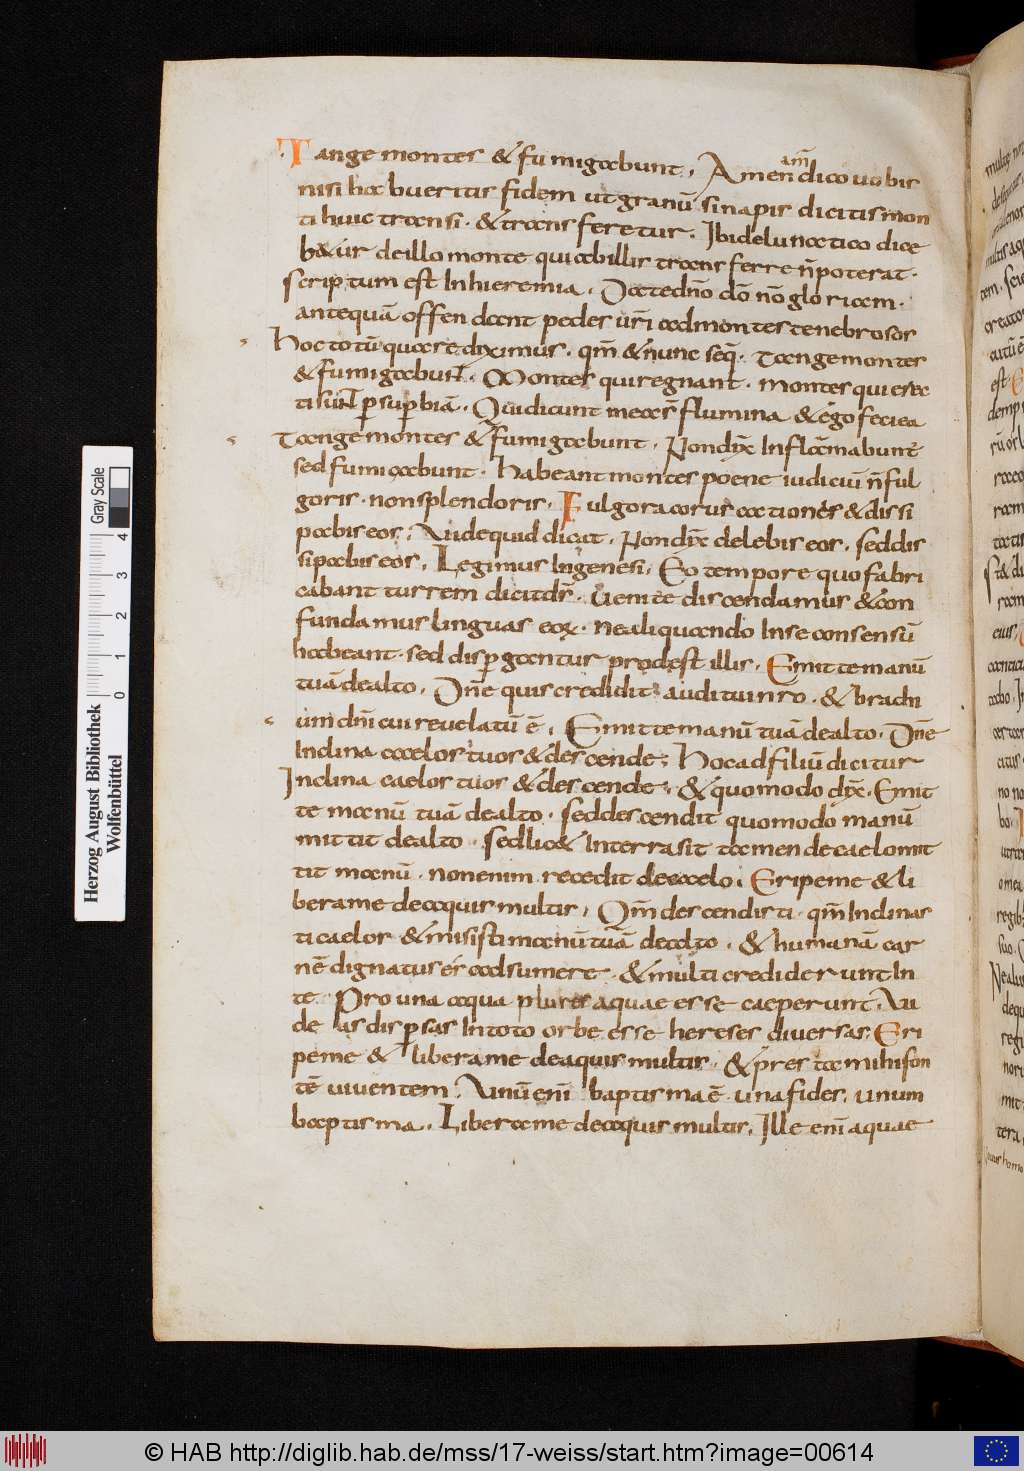 Tange montes & fumigabunt. Amen am̄ dico vobis
nisi habueritis fidem ut granū sinapis dicitis mon
ti huic transi. & transferetur. Ibi de lunatico dice
b&ur de illo monte qui ab illis transferre n̄ poterat.
scriptum est In hieremia. Date dn̄o dō nō gloriam.
antequā offendant pedes ur̄i ad montes tenebrosos
hoc totū quare diximus. qm̄ & nunc seq̄. tange montes
& fumigabunt. Montes qui regnant. montes qui erec
ti sunt p sup biā. Qui dicunt mea s̄ flumina & ego feci ea
Tange montes & fumigabunt. Non dyx̄ Inflāmabunt
sed fumigabunt. habeant montes poene iudiciū n̄ ful
goris. non splendoris. Fulgora coruscationes & dissi
pabis eos. Aude quid dicat. Non dyx̄ delebis eos. sed dis
sipabis eos. Legimus In genesi. Eo tempore quo fabri
cabant turrem dicit dr̄. Uenite discendamus & con
fundamus linguas eoꝝ. ne aliquando Inse consensū
habeant. sed disp gantur prodest illis. Emitte manū
tuā de alto. Dn̄e quis credidit auditui nro. & brachi
um dn̄i cui reuelatū ē. Emitte manū tuā de alto. Dn̄e
Inclina caelos tuos & descende. hoc ad filiū dicitur
Inclina caelos tuos & descende. & quomodo dyx̄. Emit
te manū tuā de alto. sed descendit quomodo manū
mittit de alto. sed lic& In terra sit tamen de caelo mit
tit manū. non enim recedit de caelo. Eripe me & li
bera me de aquis multis. Qm̄ descendisti. qm̄ Inclinas
ti caelos & misisti manū tuā de alto. & humanā car
nē dignatus es adsumere. & multi crediderunt In
te. Pro una aqua plures aquae esse caeperunt. Au
de as disp sas In toto orbe esse hereses diuersas. Eri
pe me & libera me de aquis multis. & pres ta mihi fon
tē uiuentem. Unū eni baptisma ē. una fides. unum
baptisma. Libera me de aquis multis. Ille eni aquae
Herzog August Bibliothek
Wolfenbüttel
Gray Scale
0 1 2 3 4
© HAB http://diglib.hab.de/mss/17-weiss/start.htm?image=00614